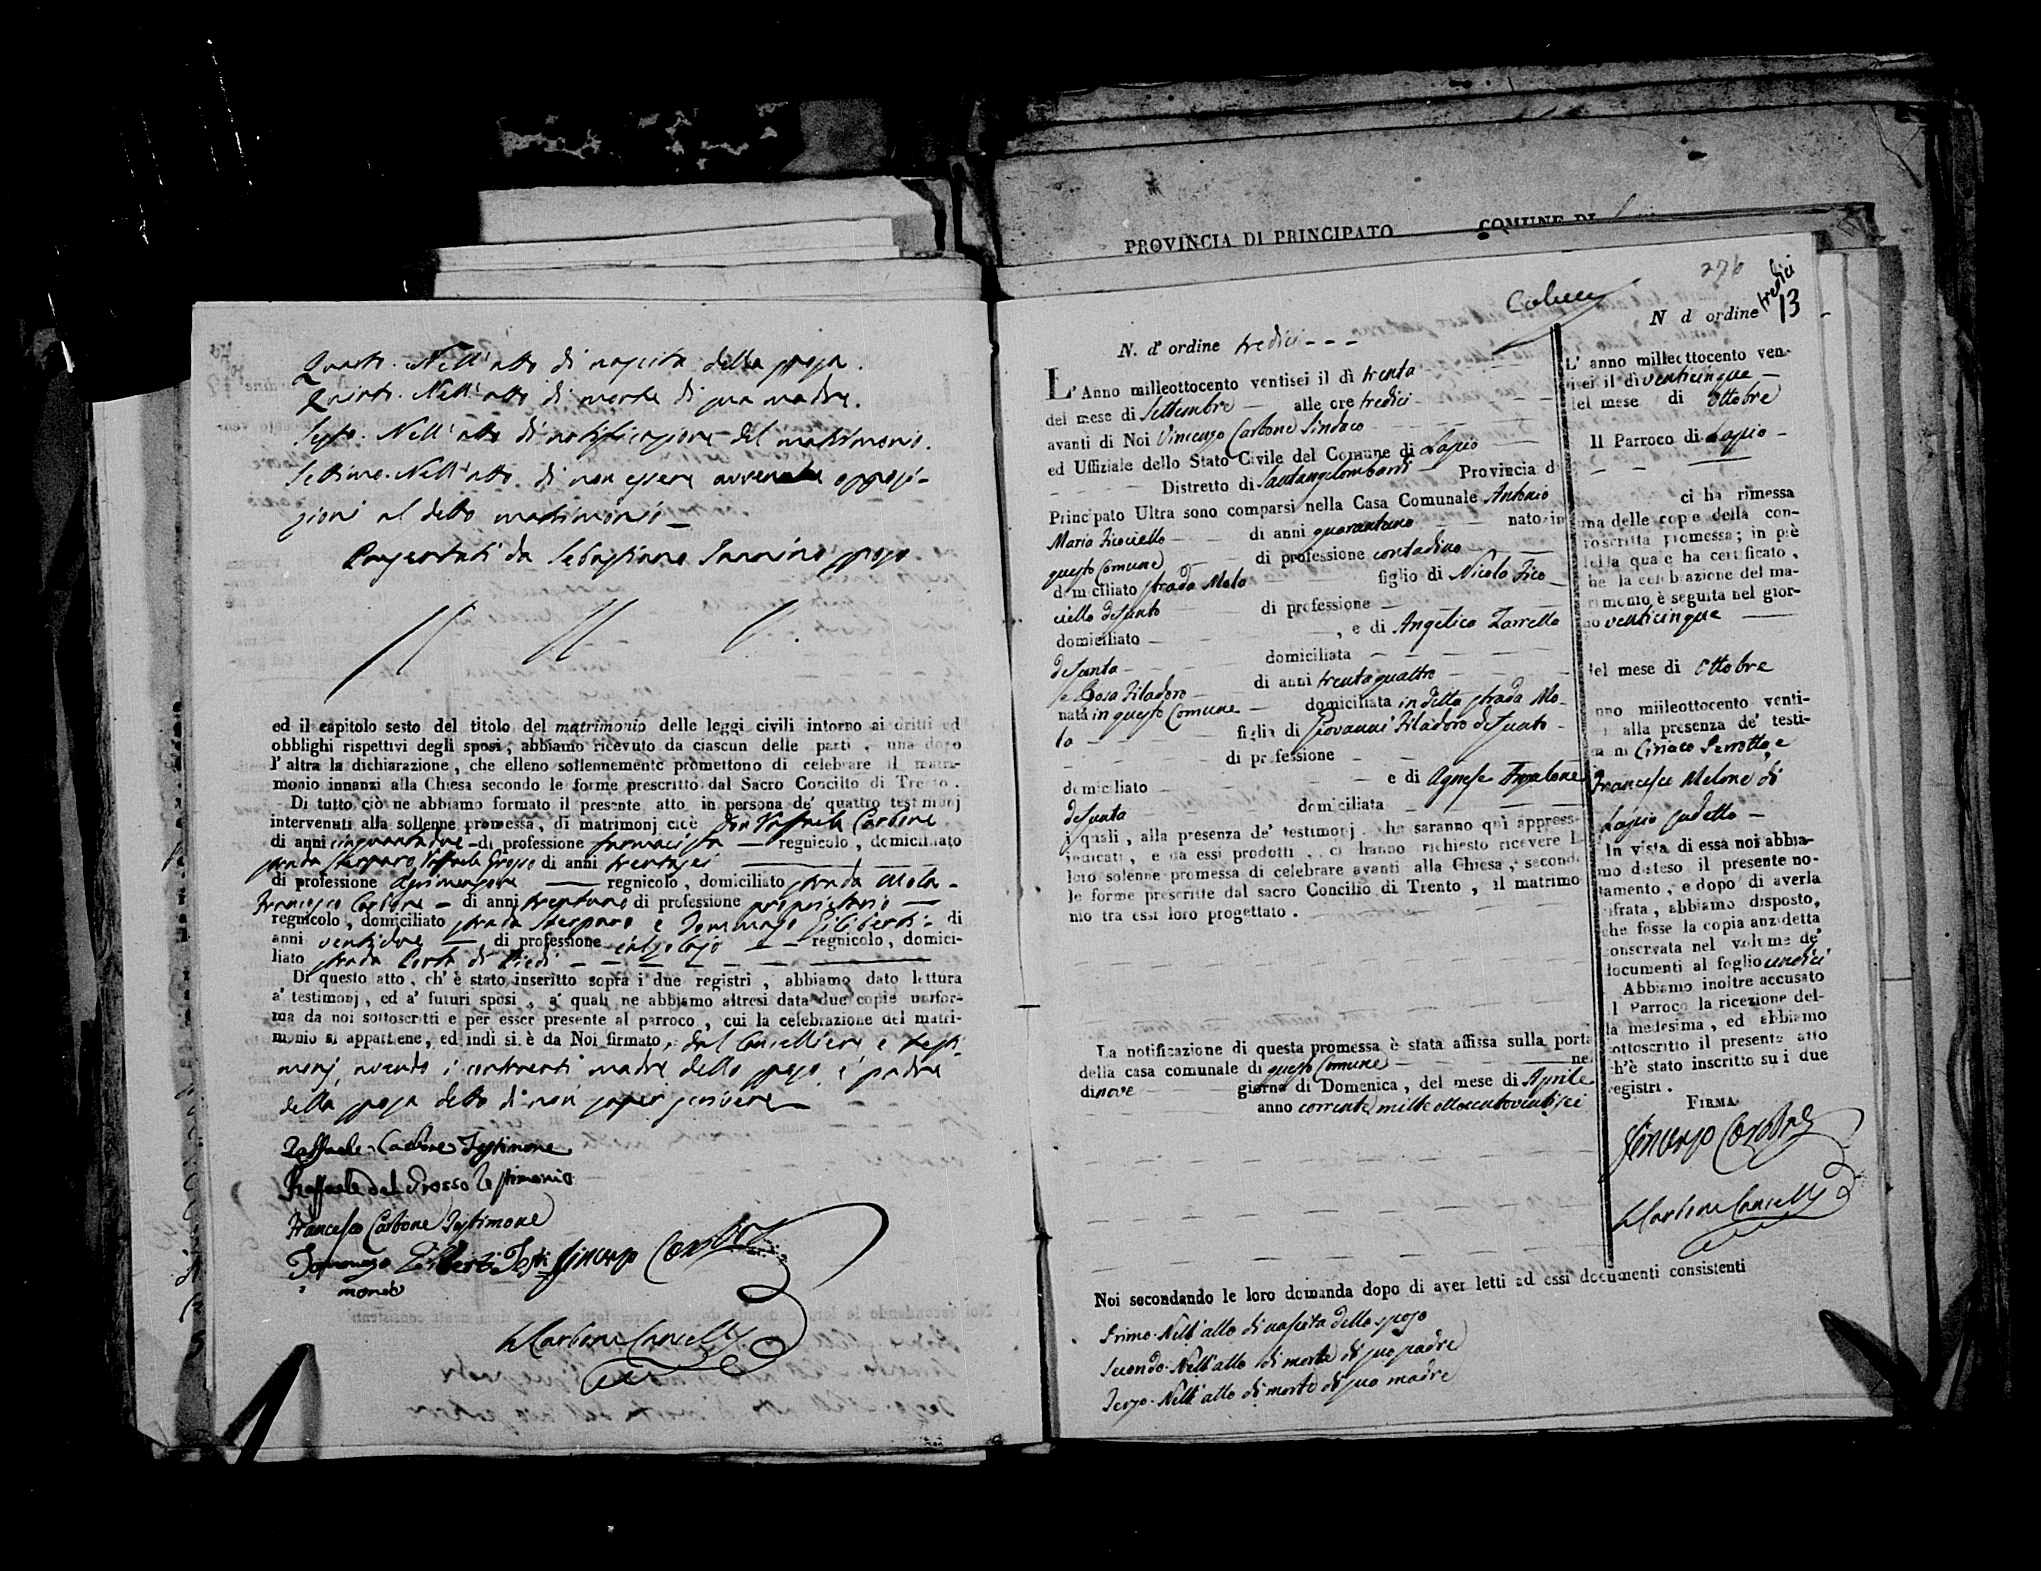 Quarto. Nell'atto di nascita della sposa.
Quinto. Nell'atto di morte di sua madre.
Sesto. Nell'atto di notificazione del matrimonio.
Settimo. Nell'atto di non essere avvenuta opposi-
zioni al detto matrimonio
da Sebastiano sposo
ed il capitolo sesto del titolo del matrimonio delle leggi civili intorno ai dritti ed
obblighi rispettivi degli sposi, abbiamo ricevuto da ciascun delle parti, una dopo
l'altra la dichiarazione, che elleno sollennemente promettono di celebrare il matri-
monio innanzi alla Chiesa secondo le forme prescritto dal Sacro Concilio di Trento.
Di tutto ciò ne abbiamo formato il presente atto in persona de' quattro testimonj
intervenuti alla sollenne promessa, di matrimonj cioè Don Raffaele Carbone
di anni cinquantadue di professione farmacista regnicolo, domiciliato
strada Raffaele Grosso di anni trentasei
di professione Agrimensore regnicolo, domiciliato strada Mola
Francesco Carbone di anni trentuno di professione proprietario
regnicolo, domiciliato strada e Tommaso Ziliberti di
anni ventidue di professione calzolajo regnicolo, domici-
liato strada di Piedi
Di questo atto, ch'è stato inseritto sopra i due registri, abbiamo dato lettura
a' testimonj, ed a' futuri sposi, a' quali ne abbiamo altresi data due copie unifor-
ma da noi sottoscritti e per esser presente al parroco, cui la celebrazione del matri-
monio si appartiene, ed indi si è da Noi firmato, dal Cancelliere e testi-
monj, avendo i contraenti madre dello sposo e padre
della sposa detto di non saper scrivere
Raffaele Carbone Testimone
Raffaele del Grosso Testimonio
Francesco Carbone Testimone
Tommaso Ziliberti Testi Vincenzo Carbone
monio
Carbone Cancell.
PROVINCIA DI PRINCIPATO COMUNE DI
276
N. d' ordine tredici
L'Anno milleottocento ventisei il dì trenta
del mese di Settembre alle ore tredici
avanti di Noi Vincenzo Carbone Sindaco
ed Uffiziale dello Stato Civile del Comune di Lapio
Distretto di Santangelombardi Provincia di
Principato Ultra sono comparsi nella Casa Comunale Antonio
Maria Ficociello di anni quarantuno nato in
questo Comune di professione contadino
domiciliato strada Mola figlio di Nicola Fico
ciello defunto di professione
domiciliato , e di Angelica Zarrella
defunta domiciliata
e Rosa Filadoro di anni trentaquattro
nata in questo Comune domiciliata in detta strada Mo-
la figlia di Giovanni Filadoro defunto
di professione
domiciliato e di Agnese
defunta domiciliata
i quali, alla presenza de' testimonj che saranno quì appresso
indicati, e da essi prodotti, ci hanno richiesto ricevere la
loro solenne promessa di celebrare avanti alla Chiesa, secondo
le forme prescritte dal sacro Concilio di Trento, il matrimo
nio tra essi loro progettato.
La notificazione di questa promessa è stata affissa sulla porta
della casa comunale di questo Comune nel
dì nove giorno di Domenica, del mese di Aprile
anno corrente mille ottocentoventisei
Noi secondando le loro domanda dopo di aver letti ad essi documenti consistenti
Primo. Nell'atto di nascita dello sposo
Secondo. Nell'atto di morte di suo padre
Terzo. Nell'atto di morte di sua madre
N d ordine tredici
13
L'anno milleottocento ven-
tisei il dì venticinque
del mese di Ottobre
Il Parroco di Lapio
ci ha rimessa
una delle copie della con-
troscritta promessa; in piè
della quale ha certificato,
che la celebrazione del ma-
trimonio è seguita nel gior-
no venticinque
del mese di Ottobre
anno milleottocento venti-
alla presenza de' testi-
moni Ciriaco Perrotta, e
Francesco Melone di
Lapio sudetto
In vista di essa noi abbia-
mo disteso il presente no-
tamento, e dopo di averla
cifrata, abbiamo disposto,
che fosse la copia anzidetta
conservata nel volume de'
documenti al foglio undici
Abbiamo inoltre accusato
al Parroco la ricezione del-
la medesima, ed abbiamo
sottoscritto il presente atto
ch'è stato inscritto su i due
registri.
FIRMA
Vincenzo Carbone
Carbone Cancell.